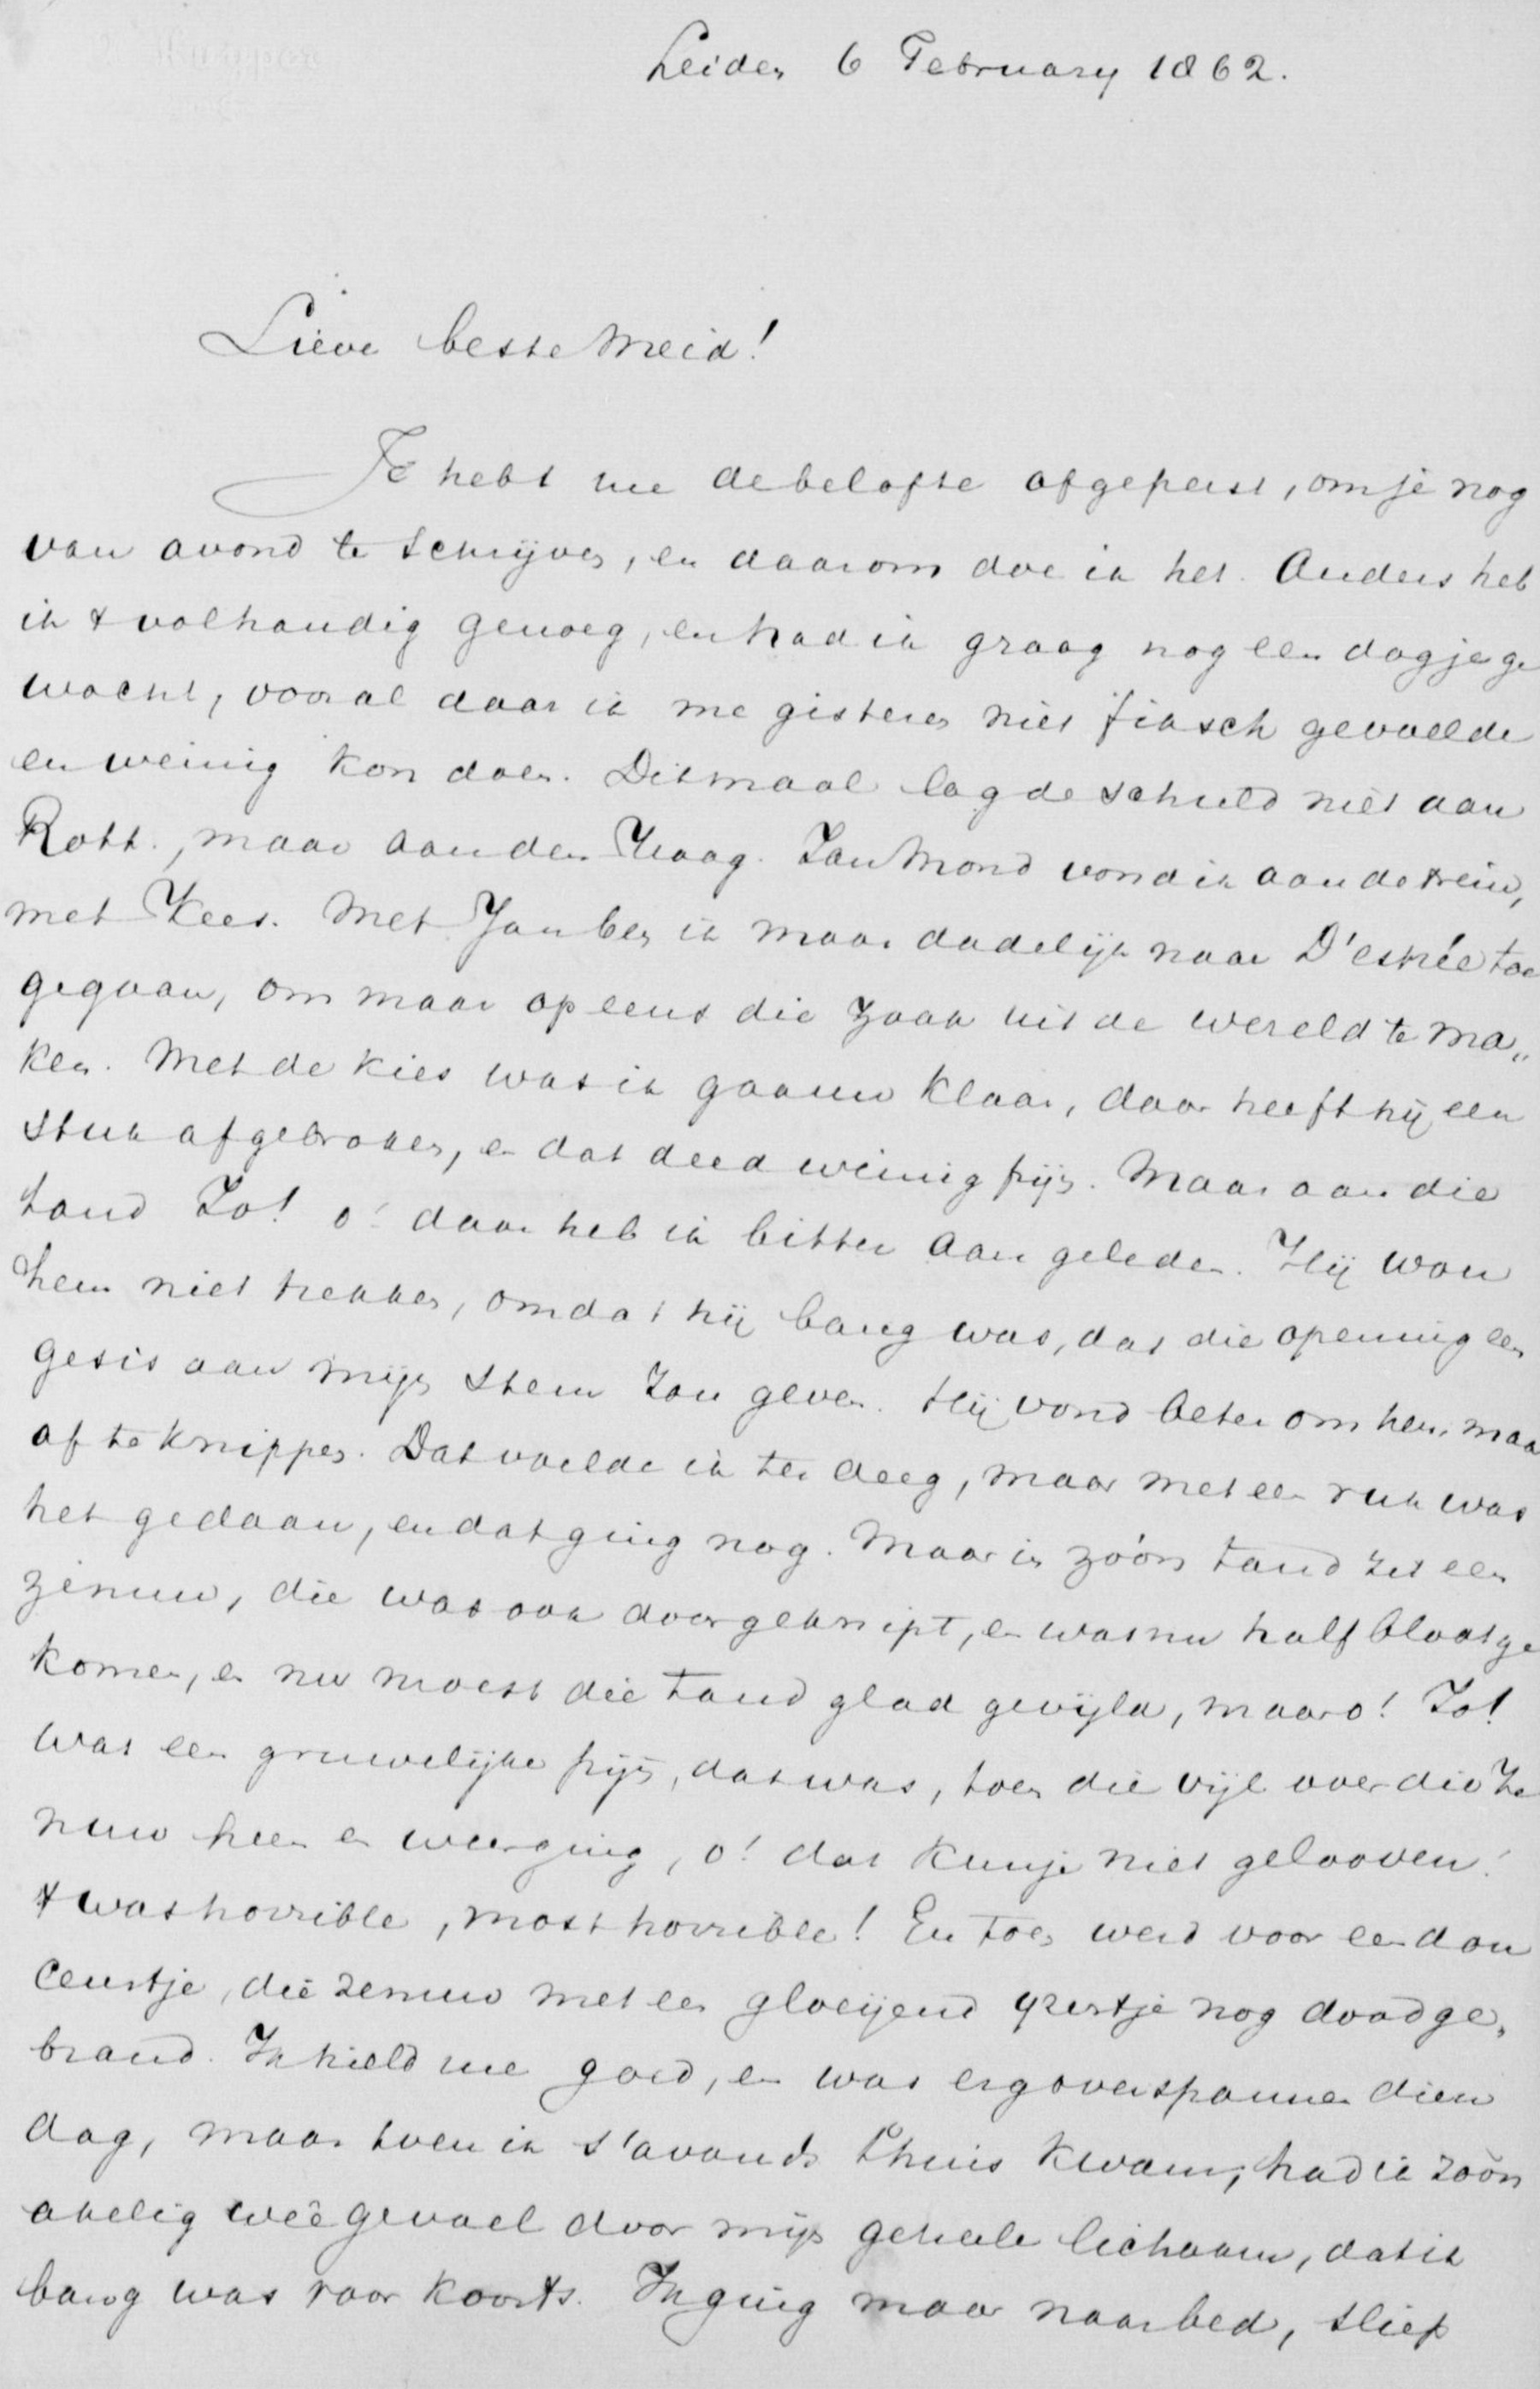 Leiden 6 February 1862.
Lieve beste Meid!
Je hebt me de belofte afgeperst, om je nog
van avond te schrijven, en daarom doe ik het. Anders heb
ik 't volhandig genoeg, en had ik graag nog een dagje ge
wacht, vooral daar ik me gisteren niet fiksch gevoelde
en weinig kon doen. Ditmaal lag de schuld niet aan
Rott., maar aan den Haag. Jan Mond vond ik aan de trein,
met Kees. Met Jan ben ik maar dadelijk naar D'estrée toe
gegaan, om maar op eens die zaak uit de wereld te ma„
ken. Met de kies was ik gaauw klaar, daar heeft hij een
stuk afgebroken, en dat deed weinig pijn. Maar aan die
tand Jo! o! daar heb ik bitter aan geleden. Hij wou
hem niet trekken, omdat hij bang was, dat die opening een
gesis aan mijn stem zou geven. Hij vond beter om hem maar
af te knippen. Dat voelde ik ter deeg, maar met een ruk was
het gedaan, en dat ging nog. Maar in zóón tand zit een
zenuw, die was ook doorgeknipt, en was nu half bloot ge
komen, en nu moest die tand glad gevijld, maar o! Jo!
wat een gruwelijke pijn, dat was, toen die vijl over die ze
nuw heen en weer ging, o! dat kun je niet gelooven!
't was horrible, most horrible! En toen werd voor een dou
ceurtje, die zenuw met een gloeijend yzertje nog doodge„
brand. Ik hield me goed, en was erg overspannen dien
dag, maar toen ik s'avonds thuis kwam, had ik zoòn
akelig weê gevoel door mijn geheele lichaam, dat ik
bang was voor koorts. Ik ging maar naar bed, sliep